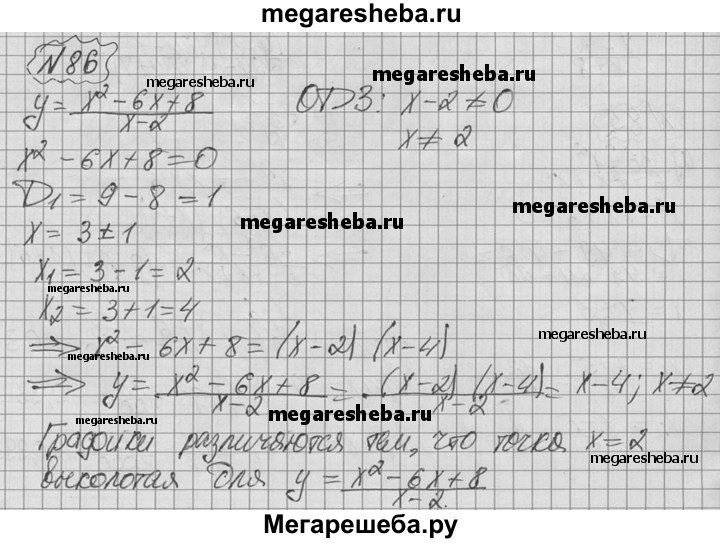 megaresheba.ru
№86
megaresheba.ru
megaresheba.ru
y = (x² - 6x + 8)/(x - 2)   ОДЗ: x - 2 ≠ 0
x ≠ 2
x² - 6x + 8 = 0
D₁ = 9 - 8 = 1
megaresheba.ru
megaresheba.ru
x = 3 ± 1
x₁ = 3 - 1 = 2
megaresheba.ru
x₂ = 3 + 1 = 4
megaresheba.ru
⇒ x² - 6x + 8 = (x - 2) (x - 4)
megaresheba.ru
⇒ y = (x² - 6x + 8)/(x - 2) = ((x - 2) (x - 4))/(x - 2) = x - 4; x ≠ 2
megaresheba.ru
megaresheba.ru
Графики различаются тем, что точка x = 2
megaresheba.ru
выколотая для y = (x² - 6x + 8)/(x - 2).
Мегарешеба.ру